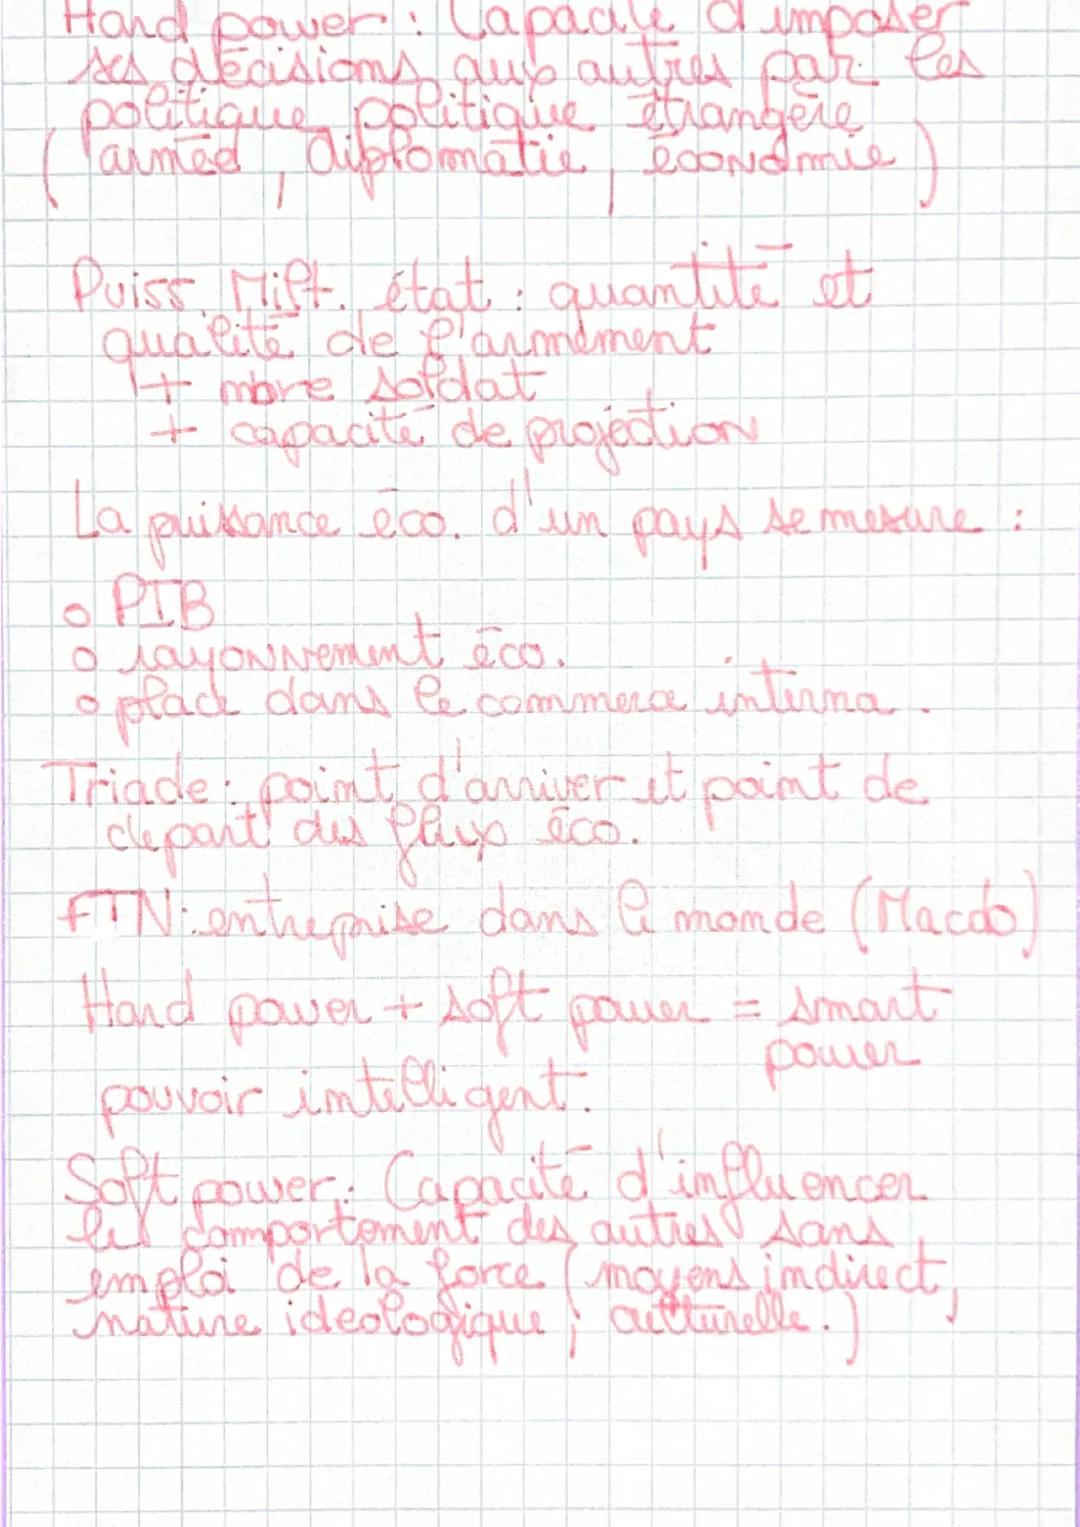 Hard power : Capacité d'imposer
ses décisions aux autres par les
politique politique étrangère
( armée , diplomatie , économie )
Puiss. Milt. état : quantité et
qualité de l'armement
+ nbre soldat
+ capacité de projection
La puissance éco. d'un pays se mesure :
o PIB
o rayonnement éco.
o place dans le commerce interna.
Triade : point d'arriver et point de
depart des flux éco.
FTN : entreprise dans le monde (Macdo)
Hard power + soft power = smart
power
pouvoir intelligent.
Soft power : Capacité d'influencer
les comportement des autres sans
emploi de la force (moyens indirect,
nature ideologique ; culturelle.)